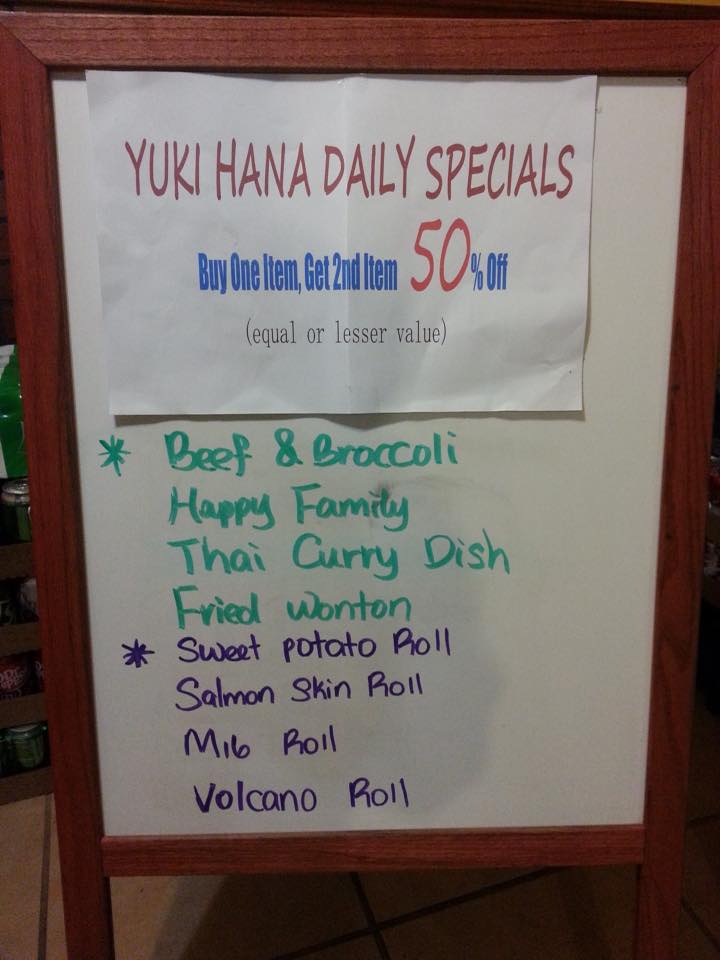 YUKI HANA DAILY SPECIALS
Buy One Item, Get 2nd Item 50% Off
(equal or lesser value)
* Beef & Broccoli
Happy Family
Thai Curry Dish
Fried wonton
* Sweet potato Roll
Salmon Skin Roll
M16 Roll
Volcano Roll